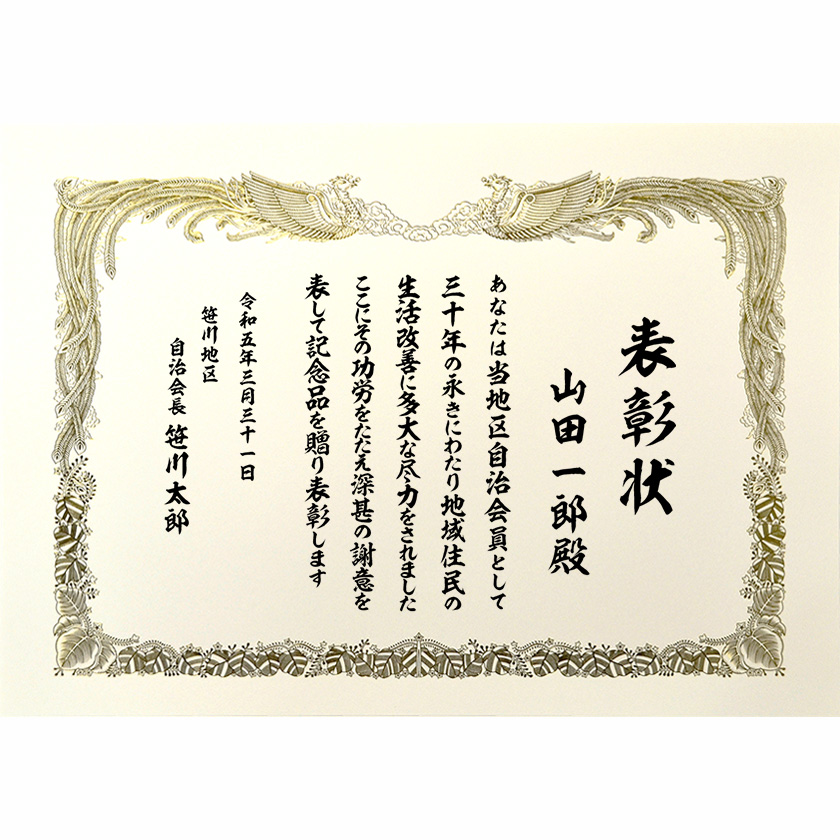 表彰状
山田一郎殿
あなたは当地区自治会員として
三十年の永きにわたり地域住民の
生活改善に多大な尽力をされました
ここにその功労をたたえ深甚の謝意を
表して記念品を贈り表彰します
令和五年三月三十一日
笹川地区
自治会長 笹川太郎